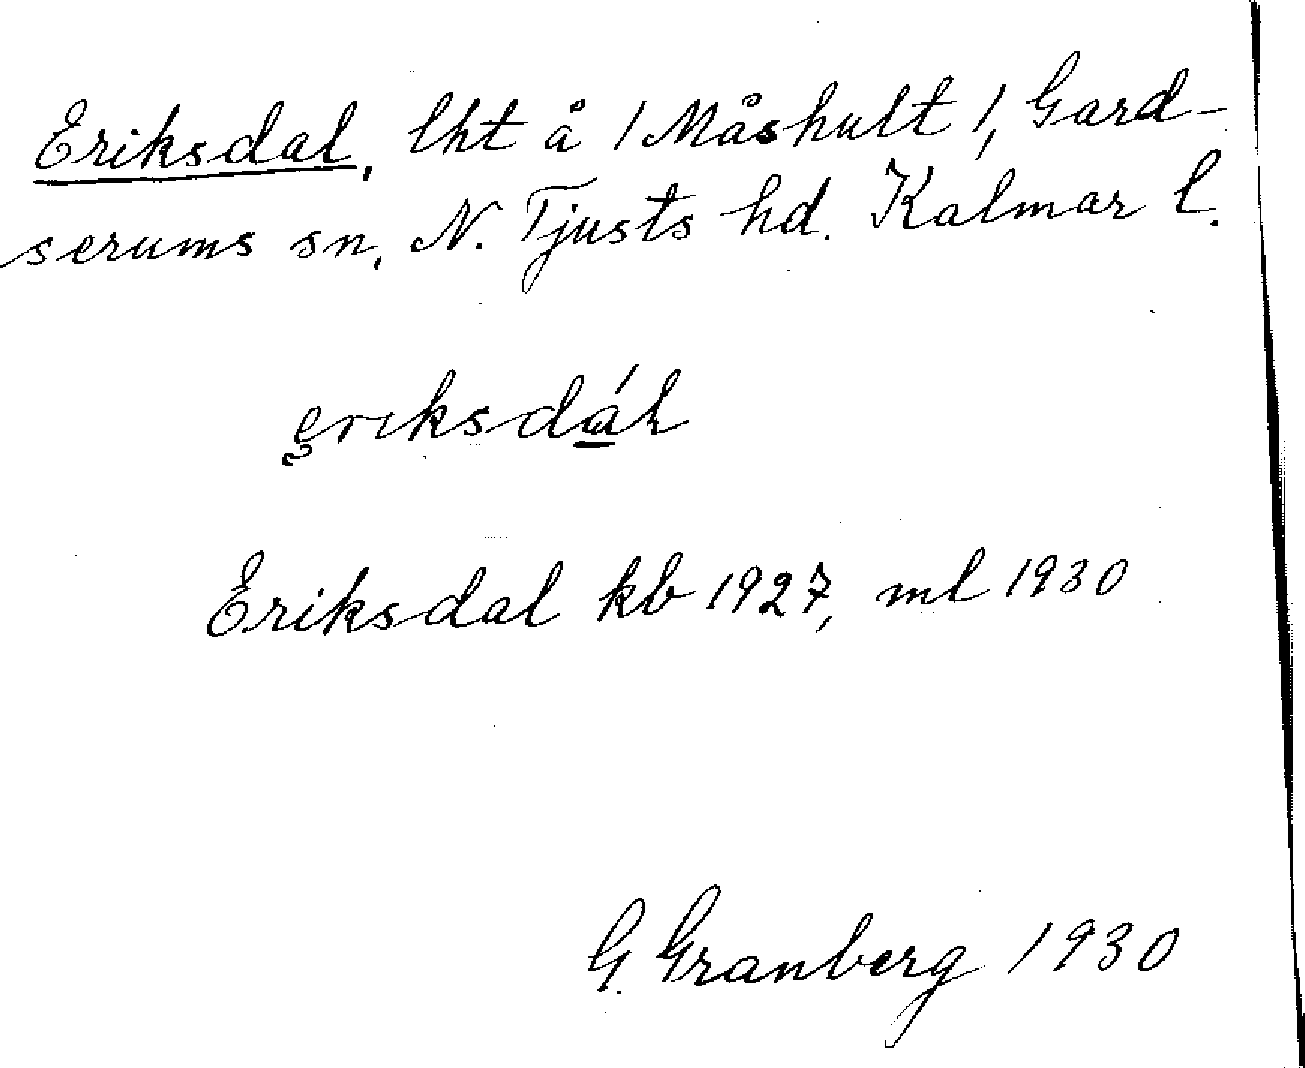 Eriksdal, lht å / Måshult /, Gard-
serums sn, N. Tjusts hd. Kalmar l.
eriksdál
Eriksdal kb 1927, ml 1930
G. Granberg 1930